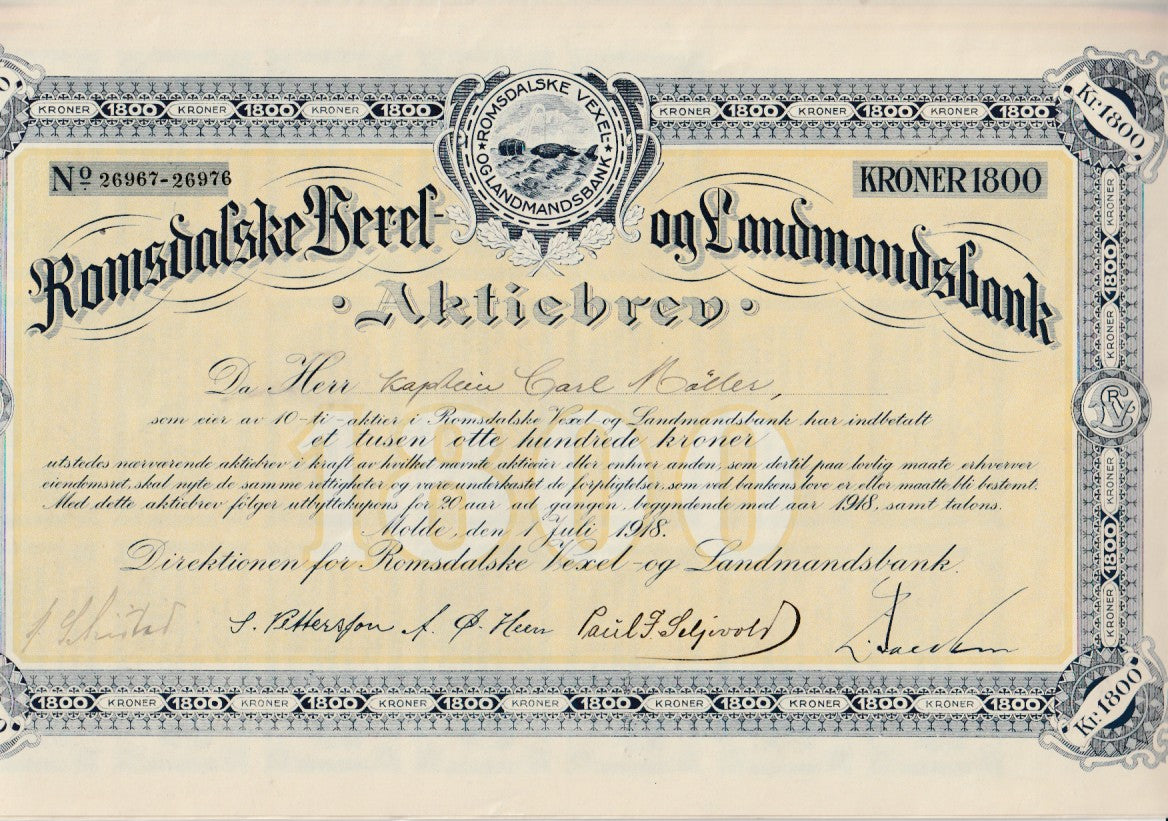 KRONER 1800 KRONER 1800 KRONER 1800
ROMSDALSKE VEXEL-
OG LANDMANDSBANK
KRONER 1800 KRONER 1800 KRONER 1800
Kr. 1800
No 26967-26976
KRONER 1800
Romsdalske Vexel-
og Landmandsbank
Aktiebrev
Da Herr Kaptein Carl Möller,
som eier av 10-ti-aktier i Romsdalske Vexel-og Landmandsbank har indbetalt
et tusen otte hundrede kroner
1800
utstedes nærværende aktiebrev i kraft av hvilket nævnte aktieeier eller enhver anden, som dertil paa lovlig maate erhverver
eiendomsret, skal nyte de samme rettigheter og være underkastet de forpligtelser, som ved bankens love er eller maatte bli bestemt.
Med dette aktiebrev følger utbyttekupons for 20 aar ad gangen, begyndende med aar 1918, samt talons.
Molde, den 1 Juli 1918.
Direktionen for Romsdalske Vexel-og Landmandsbank.
Paul F. Seljevold
KRONER 1800 KRONER 1800 KRONER
1800 KRONER 1800 KRONER 1800 KRONER 1800 KRONER 1800 KRONER 1800 KRONER 1800 KRONER 1800 KRONER 1800
Kr. 1800